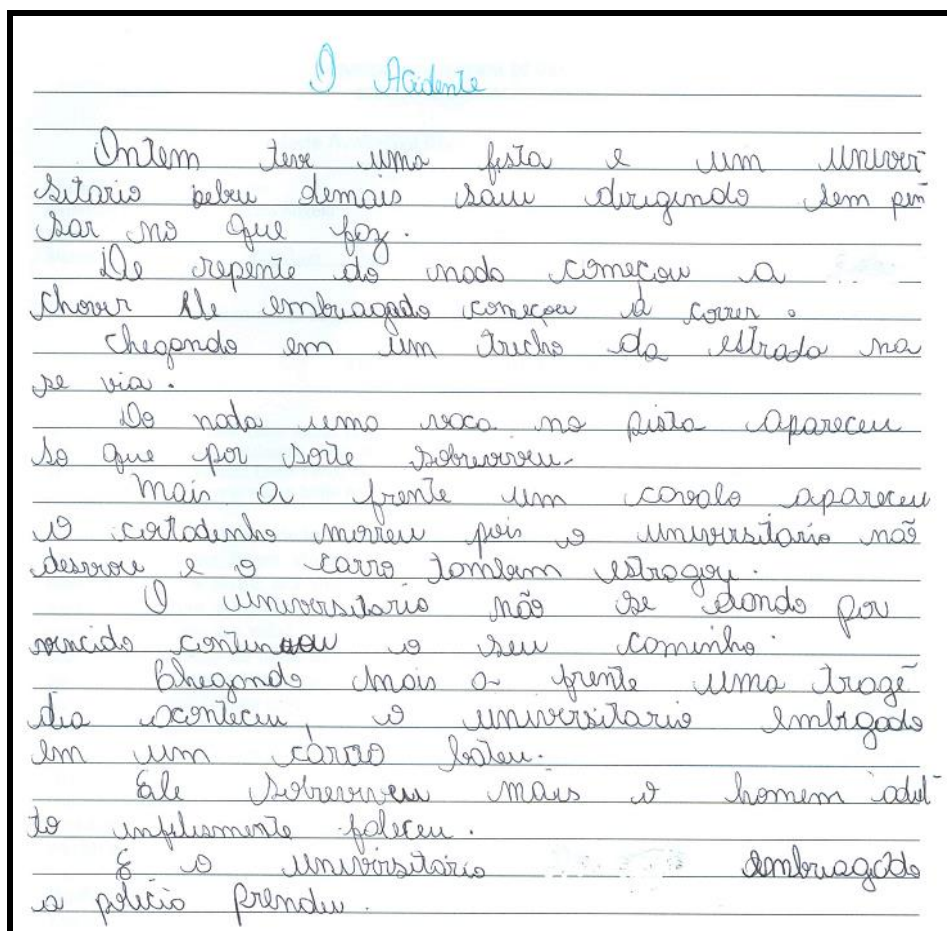 O Acidente
Ontem teve uma festa e um univer
sitario bebeu demais saiu dirigindo sem pen
sar no que foz.
De repente do nada começou a
chover Ele embriagado começou a correr.
Chegando em um trecho da estrada na
se via.
Do nada uma vaca na pista apareceu
so que por sorte sobreviveu.
Mais a frente um cavalo apareceu
o coitadinho morreu pois o universitario não
desviou e o carro tambem estragou.
O universitario não se dando por
vencido continuou o seu caminho.
Chegando mais a frente uma tragé
dia aconteceu, o universitario embrigado
em um carro bateu.
Ele sobreviveu mais o homem adul-
to infelismente faleceu.
E o universitario embriagado
a policia prendeu.